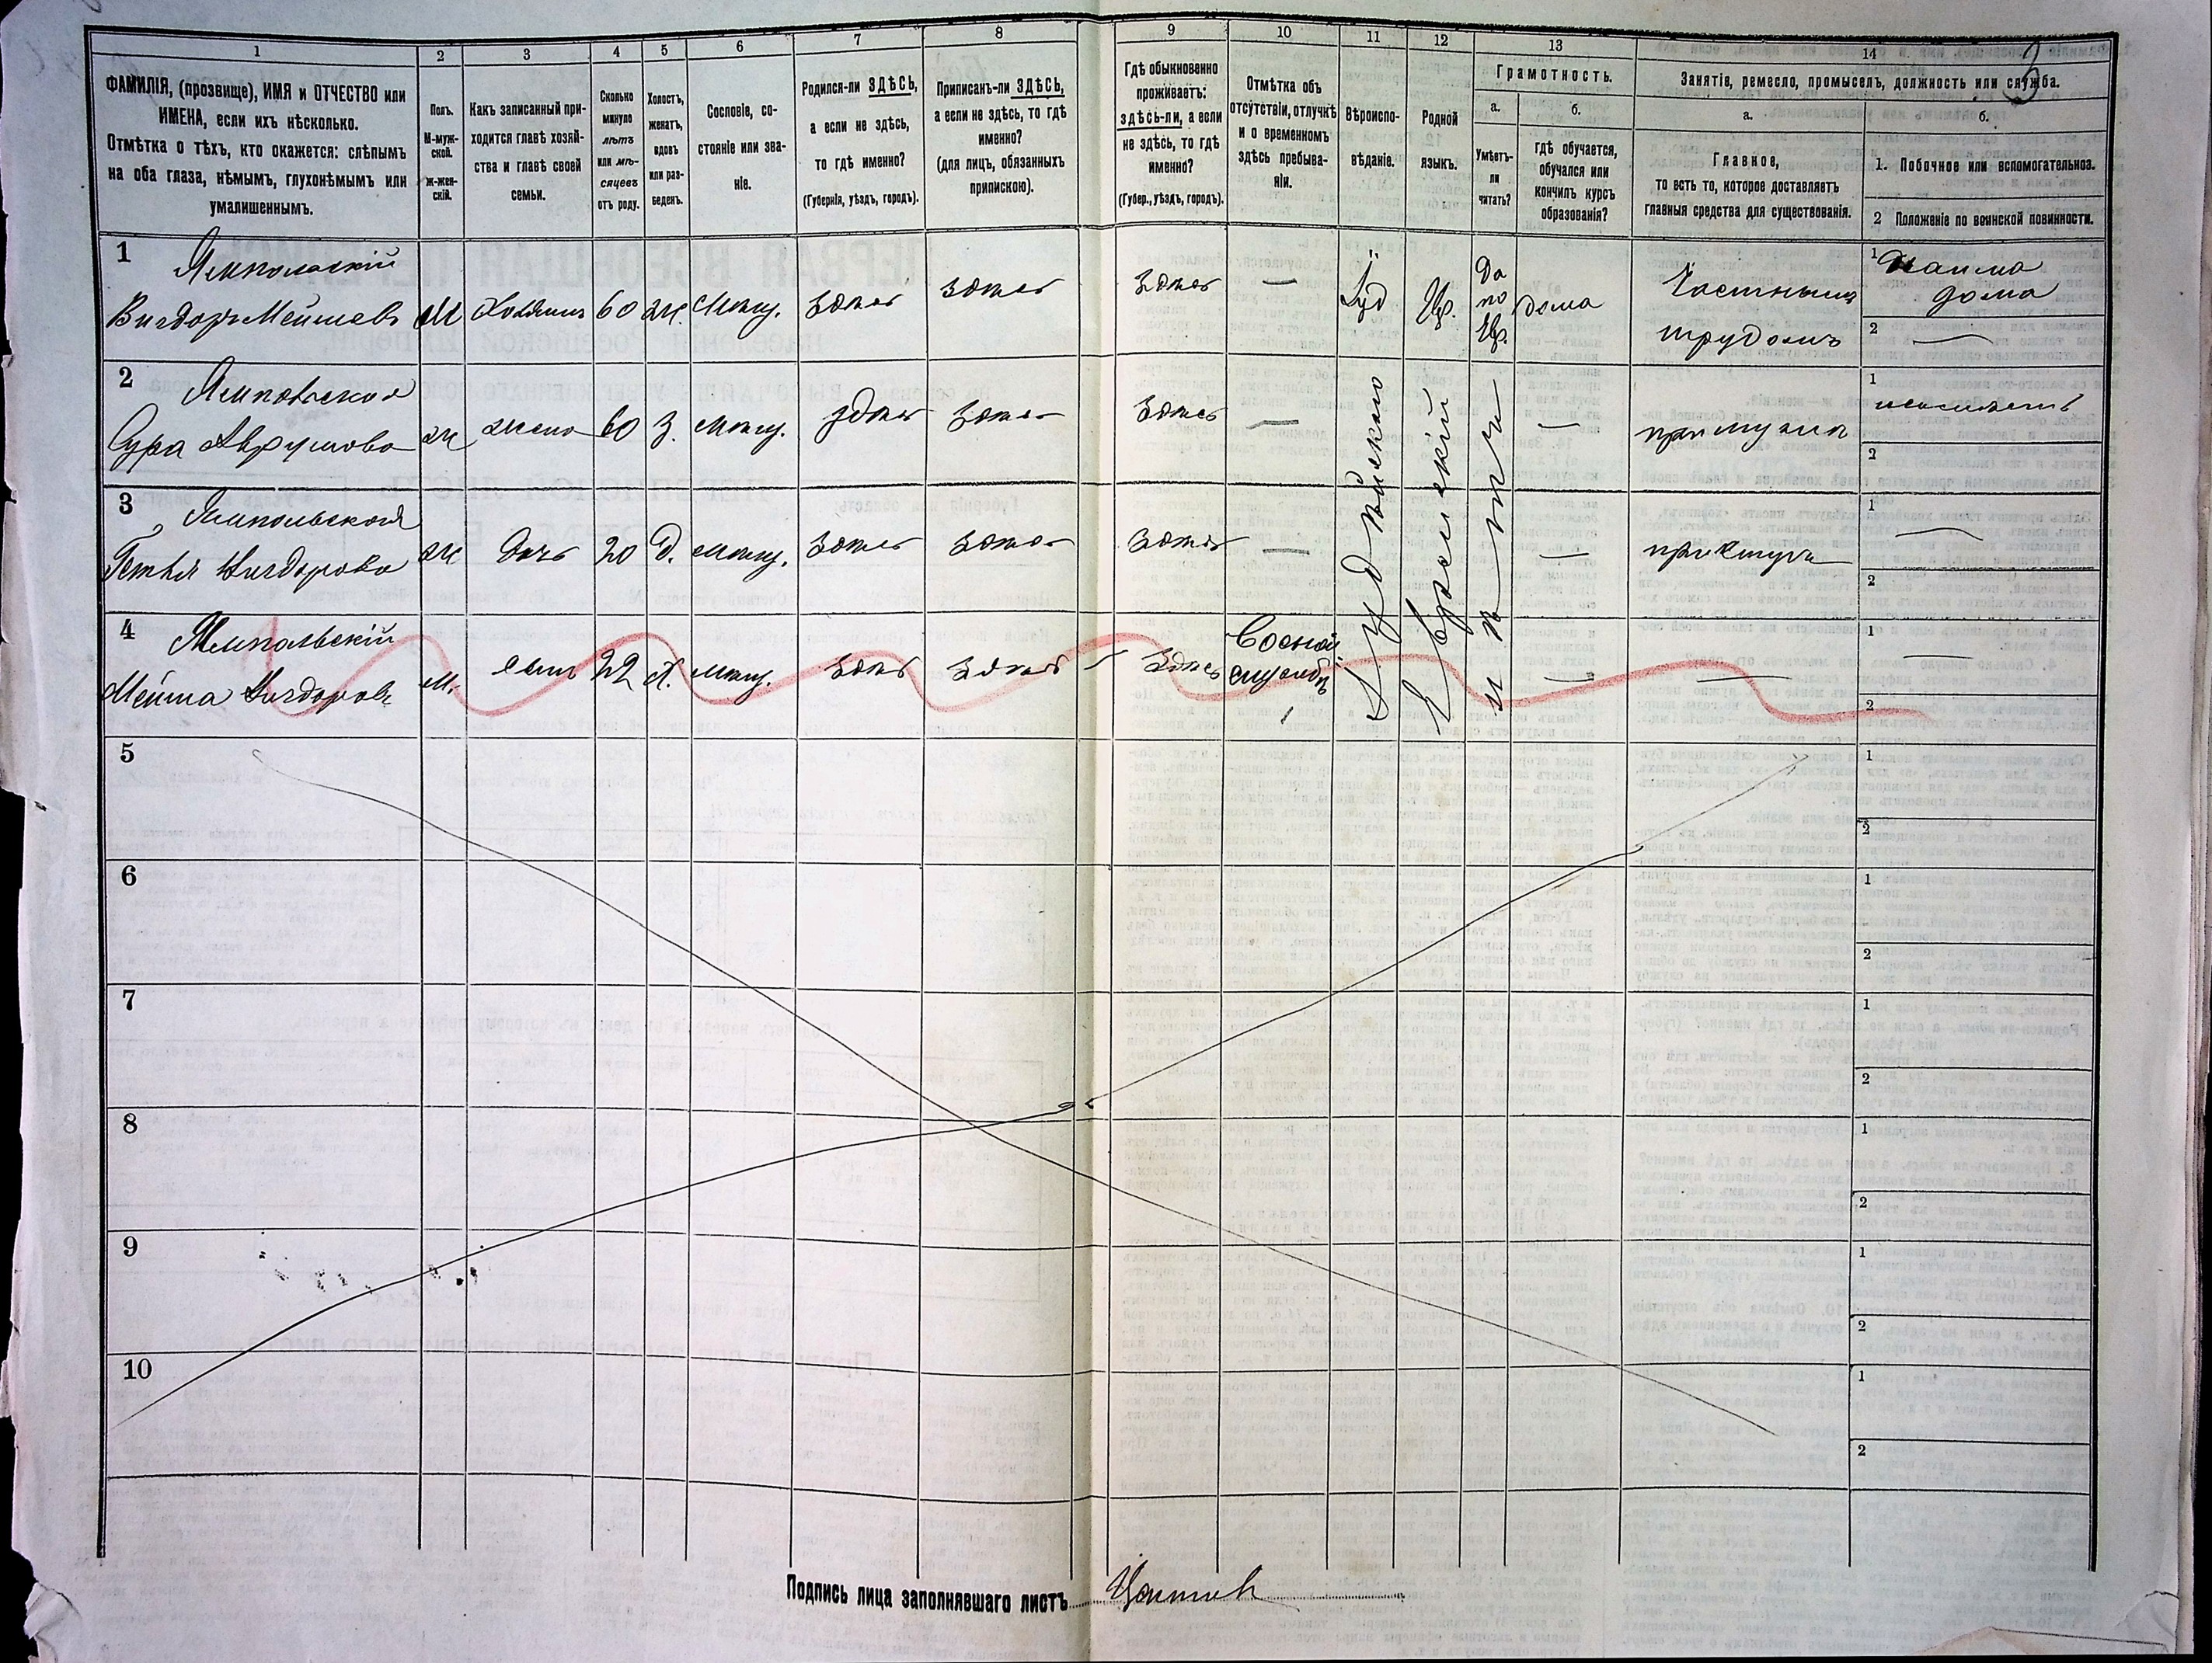 1
2
3
4
5
6
7
8
9
10
11
12
13
14
3
ФАМИЛІЯ, (прозвище), ИМЯ и ОТЧЕСТВО или
ИМЕНА, если ихъ нѣсколько.
Отмѣтка о тѣхъ, кто окажется: слѣпымъ
на оба глаза, нѣмымъ, глухонѣмымъ или
умалишеннымъ.
Полъ.
М-муж-
ской.
ж-жен-
скій.
Какъ записанный при-
ходится главѣ хозяй-
ства и главѣ своей
семьи.
Сколько
минуло
лѣтъ
или мѣ-
сяцевъ
отъ роду.
Холостъ,
женатъ,
вдовъ
или раз-
веденъ.
Сословіе, со-
стояніе или зва-
ніе.
Родился-ли ЗДѢСЬ,
а если не здѣсь,
то гдѣ именно?
(Губернія, уѣздъ, городъ).
Приписанъ-ли ЗДѢСЬ,
а если не здѣсь, то гдѣ
именно?
(для лицъ, обязанныхъ
припискою).
Гдѣ обыкновенно
проживаетъ:
здѣсь-ли, а если
не здѣсь, то гдѣ
именно?
(Губер., уѣздъ, городъ).
Отмѣтка объ
отсутствіи, отлучкѣ
и о временномъ
здѣсь пребыва-
ніи.
Вѣроиспо-
вѣданіе.
Родной
языкъ.
Грамотность.
а.
Умѣетъ-
ли
читать?
б.
гдѣ обучается,
обучался или
кончилъ курсъ
образованія?
Занятіе, ремесло, промыселъ, должность или служба.
а.
Главное,
то есть то, которое доставляетъ
главныя средства для существованія.
б.
1. Побочное или вспомогательное.
2 Положеніе по воинской повинности.
1
Ямпольскій
Вигдоръ Мейшевъ
М
Хозяинъ
60
ж.
Мѣщ.
здѣсь
здѣсь
здѣсь
—
Іуд
Ев.
Да
по
Ев.
дома
Частнымъ
трудомъ
1
дома
2 —
2
Ямпольская
Сура Аврумова
ж
жена
60
З.
мѣщ.
здѣсь
здѣсь
здѣсь
—
Іудейского
Еврейскій
нѣтъ
—
при мужѣ
1
2
3
Ямпольская
Вигдорова
ж
дочь
20
д.
мѣщ.
здѣсь
здѣсь
здѣсь
—
—
при отцѣ
1 —
2
4
Ямпольскій
Мейша Вигдоровъ
м.
сынъ
22
х.
мѣщ.
здѣсь
здѣсь
здѣсь
Военной
службѣ
—
—
1 —
2
5
1
2
6
1
2
7
1
2
8
1
2
9
1
2
10
1
2
Подпись лица заполнявшаго листъ